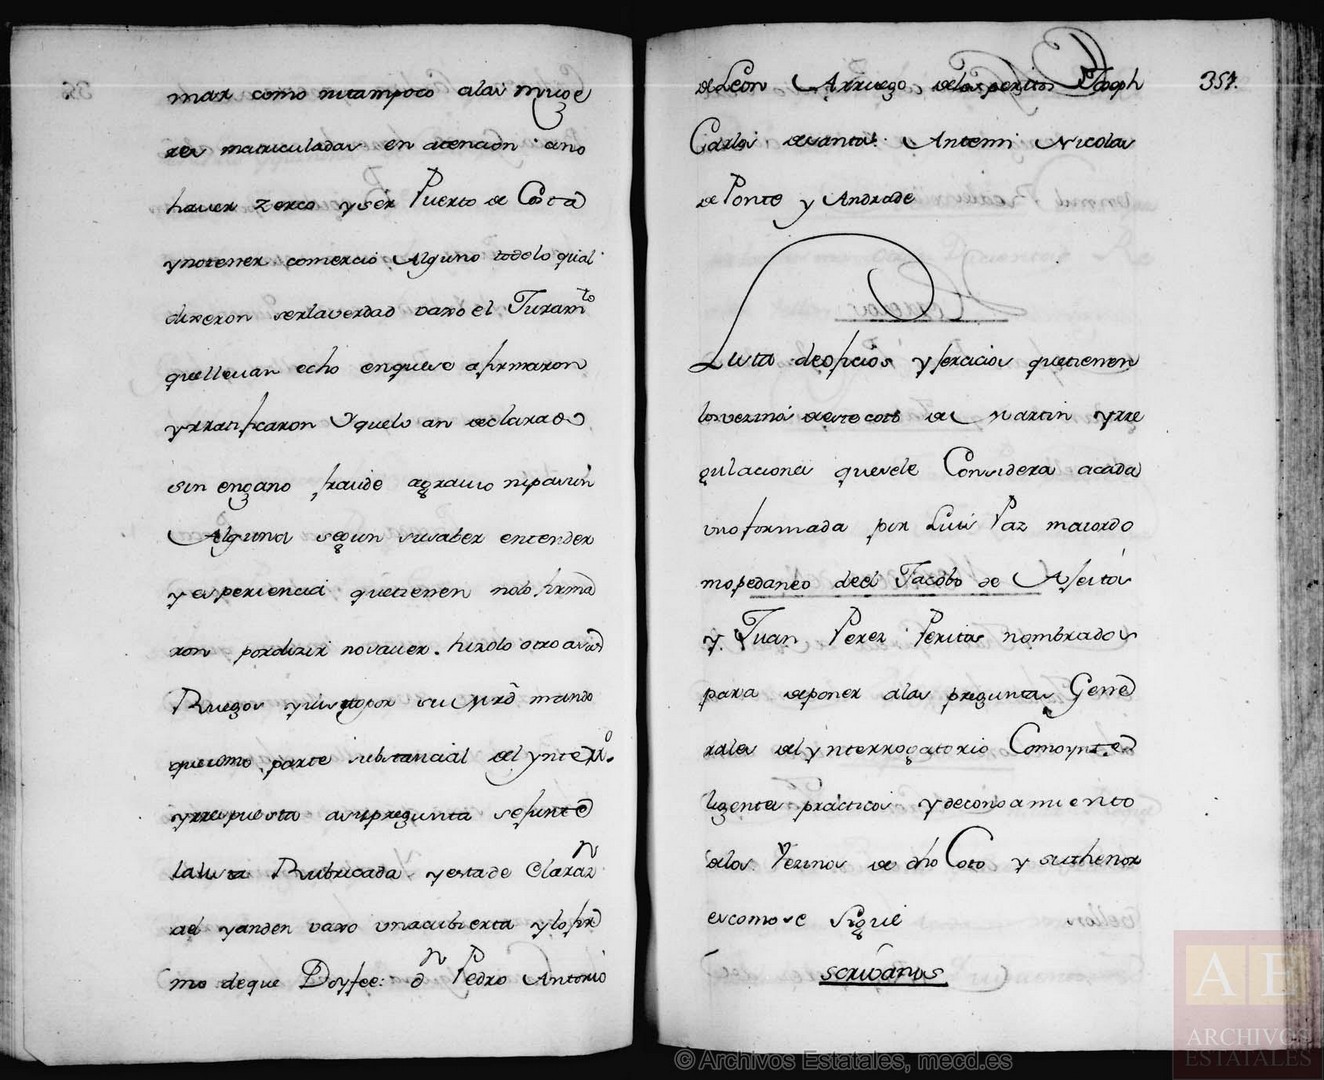 mar como nitampoco alas Muge
res matriculadas en atencion ano
haver zerco yser Puerto de Costa
ynotener comercio Alguno todolo qual
dixeron serlaverdad vaxo el Juramto
quellevan echo enquese afirmaron
yrratificaron Yquelo an declarado
sin engano fraude agravio nipasion
Alguna segun susaber entender
yesperiencia quetienen nolo firma
ron pordizir novaver. hizolo otro asus
Ruegos yvisto por su Mrd mando
quecomo parte substancial del ynterro.
yrrespuesta asupregunta sejunte
lalista Rubricada yestade Clarazn
ad yanden vaxo unacubierta ylofir
mo deque Doyfee: dn Pedro Antonio
de Leon Arruego delosperitos Joseph
Carlos desanta: Antemi Nicolas
de Ponte y Andrade
357.
Lista deoficios yseracios quetienen
losvezinos deestecoto de Martin yrre
gulaciones quesele Considera acada
uno formada por Luis Paz maiordo
mopedaneo deel Jacobo de Aseitas
y Juan Perez Peritos nombrados
para deponer alas preguntas Gene
rales delynterrogatorio Comoynte
ligentes practicos ydeconosamiento
delos Vezinos de dho Coto y suthenor
escomose Sigue
scrivanos
© Archivos Estatales, mecd.es
AE
ARCHIVOS
ESTATALES